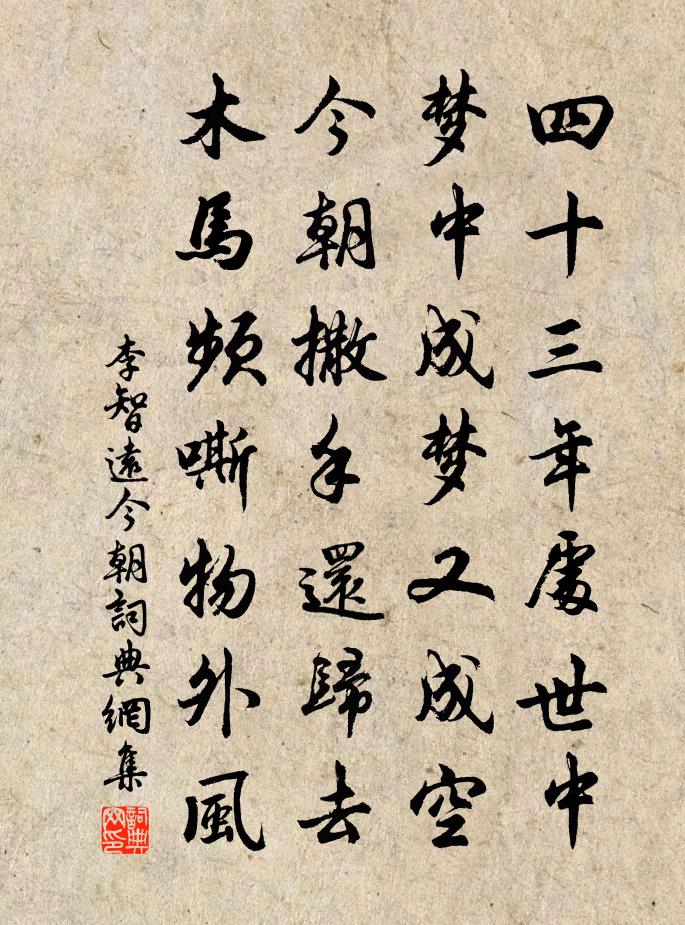 四十三年處世中
梦中成梦又成空
今朝撒手還歸去
木馬頻嘶物外風
李智遠今朝詞典網集
詞典
网印